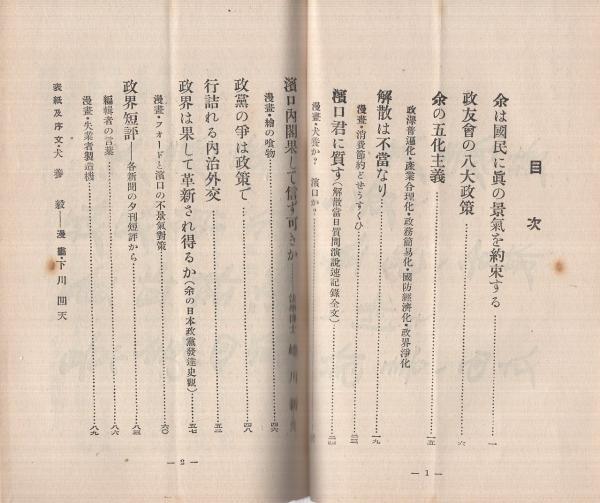 目次
余は國民に眞の景氣を約束する……一
政友會の八大政策……六
余の五化主義……一五
政治普遍化・產業合理化・政務簡易化・國防經濟化・政界淨化
解散は不當なり……一九
漫畫・消費節約どぜうすくひ……二三
濱口君に質す(解散當日質問演說速記錄全文)……二四
漫畫・犬養か? 濱口か?
— 1 —
濱口內閣果して信ず可きか
漫畫・繪の喰物……四六
政黨の爭は政策で……四八
行詰れる內治外交……五三
政界は果して革新され得るか(余の日本政黨發達史觀)……五七
漫畫・フォードと濱口の不景氣對策……六〇
政界短評——各新聞の夕刊短評から……八三
編輯者の言葉……八六
漫畫・失業者製造機……八九
表紙及序文・犬養 毅——漫畫・下川凹天
— 2 —